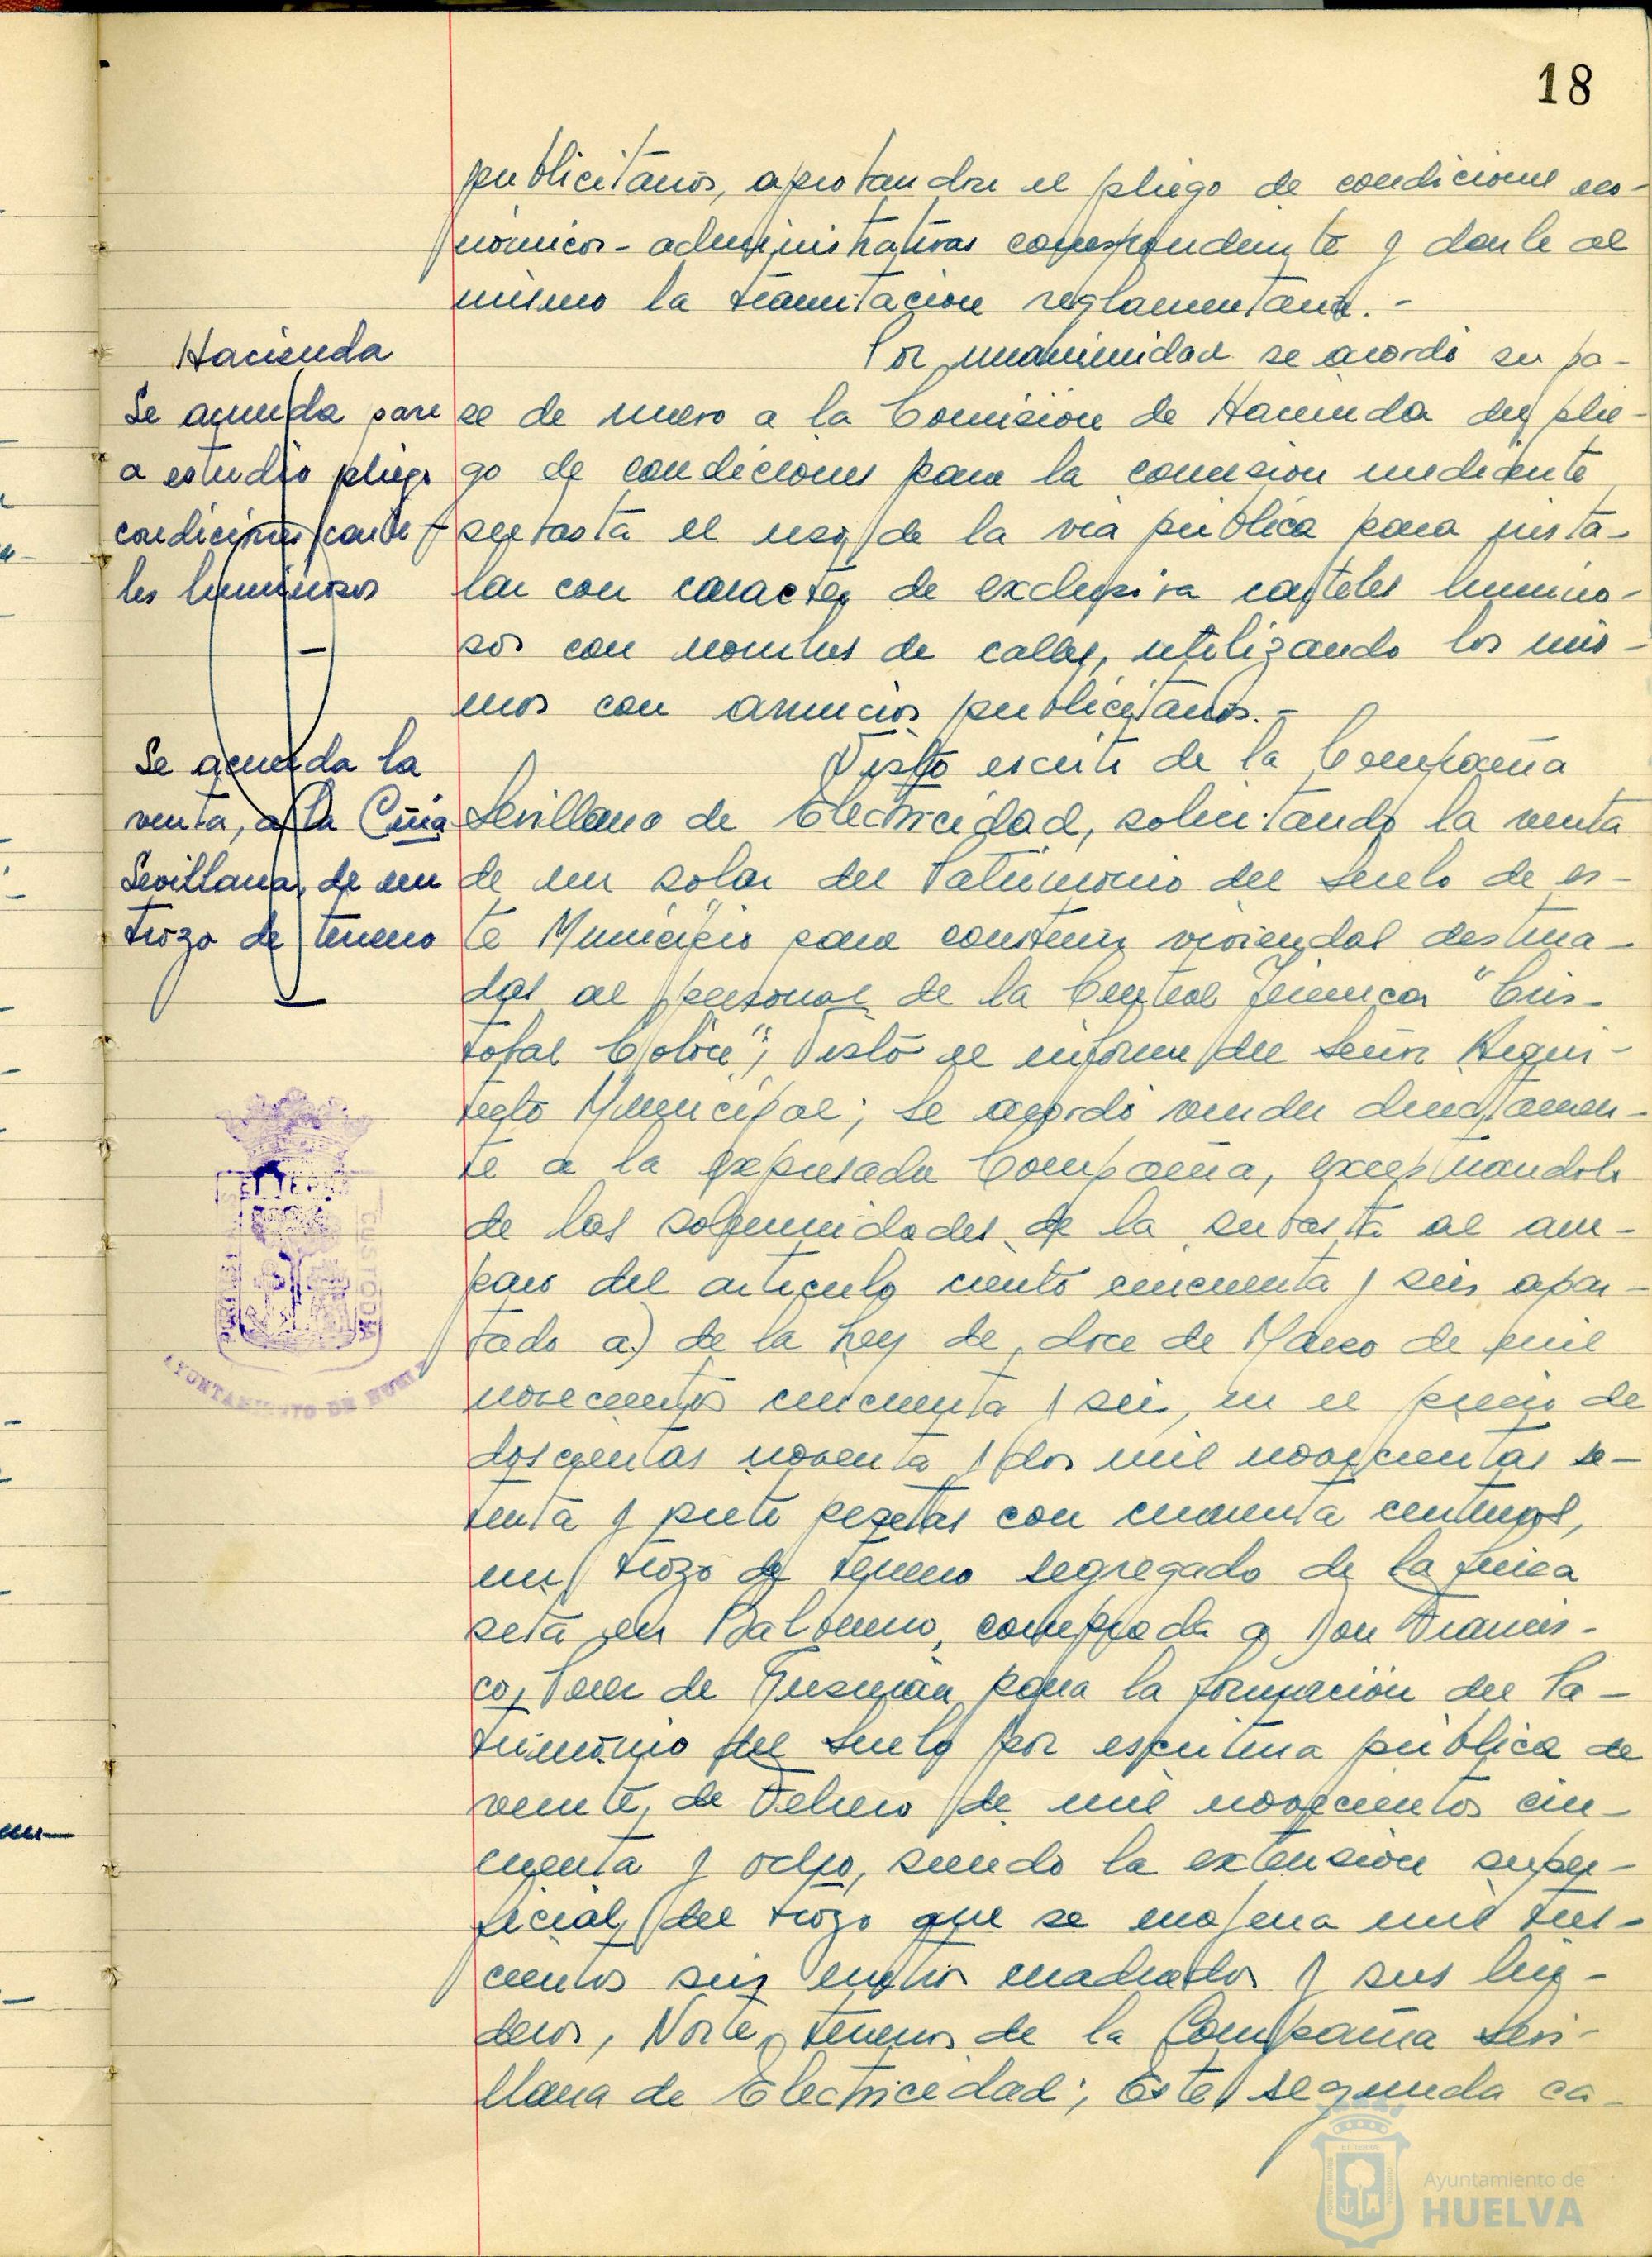 18
publicitarios, aprobandose el pliego de condiciones eco-
nómicos-administrativas correspondiente y darle al
mismo la tramitación reglamentaria.-
Hacienda
Se acuerda pase
a estudio pliego
condiciones carte-
les luminosos
Por unanimidad se acordó su pa-
se de nuevo a la Comisión de Hacienda del plie-
go de condiciones para la concesion mediante
subasta el uso de la via pública para insta-
lar con caracter de exclusiva carteles lumino-
sos con nombres de calles, utilizando los mis-
mos con anuncios publicitarios.-
Se acuerda la
venta, a la Cñia
Sevillana, de un
trozo de terreno
Visto escrito de la Compañia
Sevillana de Electricidad, solicitando la venta
de un solar del Patrimonio del Suelo de es-
te Municipio para construir viviendas destina-
das al personal de la Central Térmica "Cris-
tobal Colón"; Visto el informe del Señor Arqui-
tecto Municipal; se acordó vender directamen-
te a la expresada Compañia, exceptuandola
de las solemnidades de la subasta al am-
paro del articulo ciento cincuenta y seis apar-
tado a) de la Ley de doce de Mayo de mil
novecientos cincuenta y seis, en el precio de
doscientas noventa y dos mil novecientas se-
tenta y siete pesetas con cincuenta centimos,
un trozo de terreno segregado de la finca
sita en Balbueno, comprada a Don Francis-
co Perez de Guzmán para la formación del Pa-
trimonio del Suelo por escritura pública de
veinte de Febrero de mil novecientos cin-
cuenta y ocho, siendo la extensión super-
ficial del trozo que se enajena mil tres-
cientos seis metros cuadrados y sus lin-
deros, Norte, terrenos de la Compañia Sevi-
llana de Electricidad; Este, segunda ca-
CUSTODIA
AYUNTAMIENTO DE HUELVA
Ayuntamiento de
HUELVA